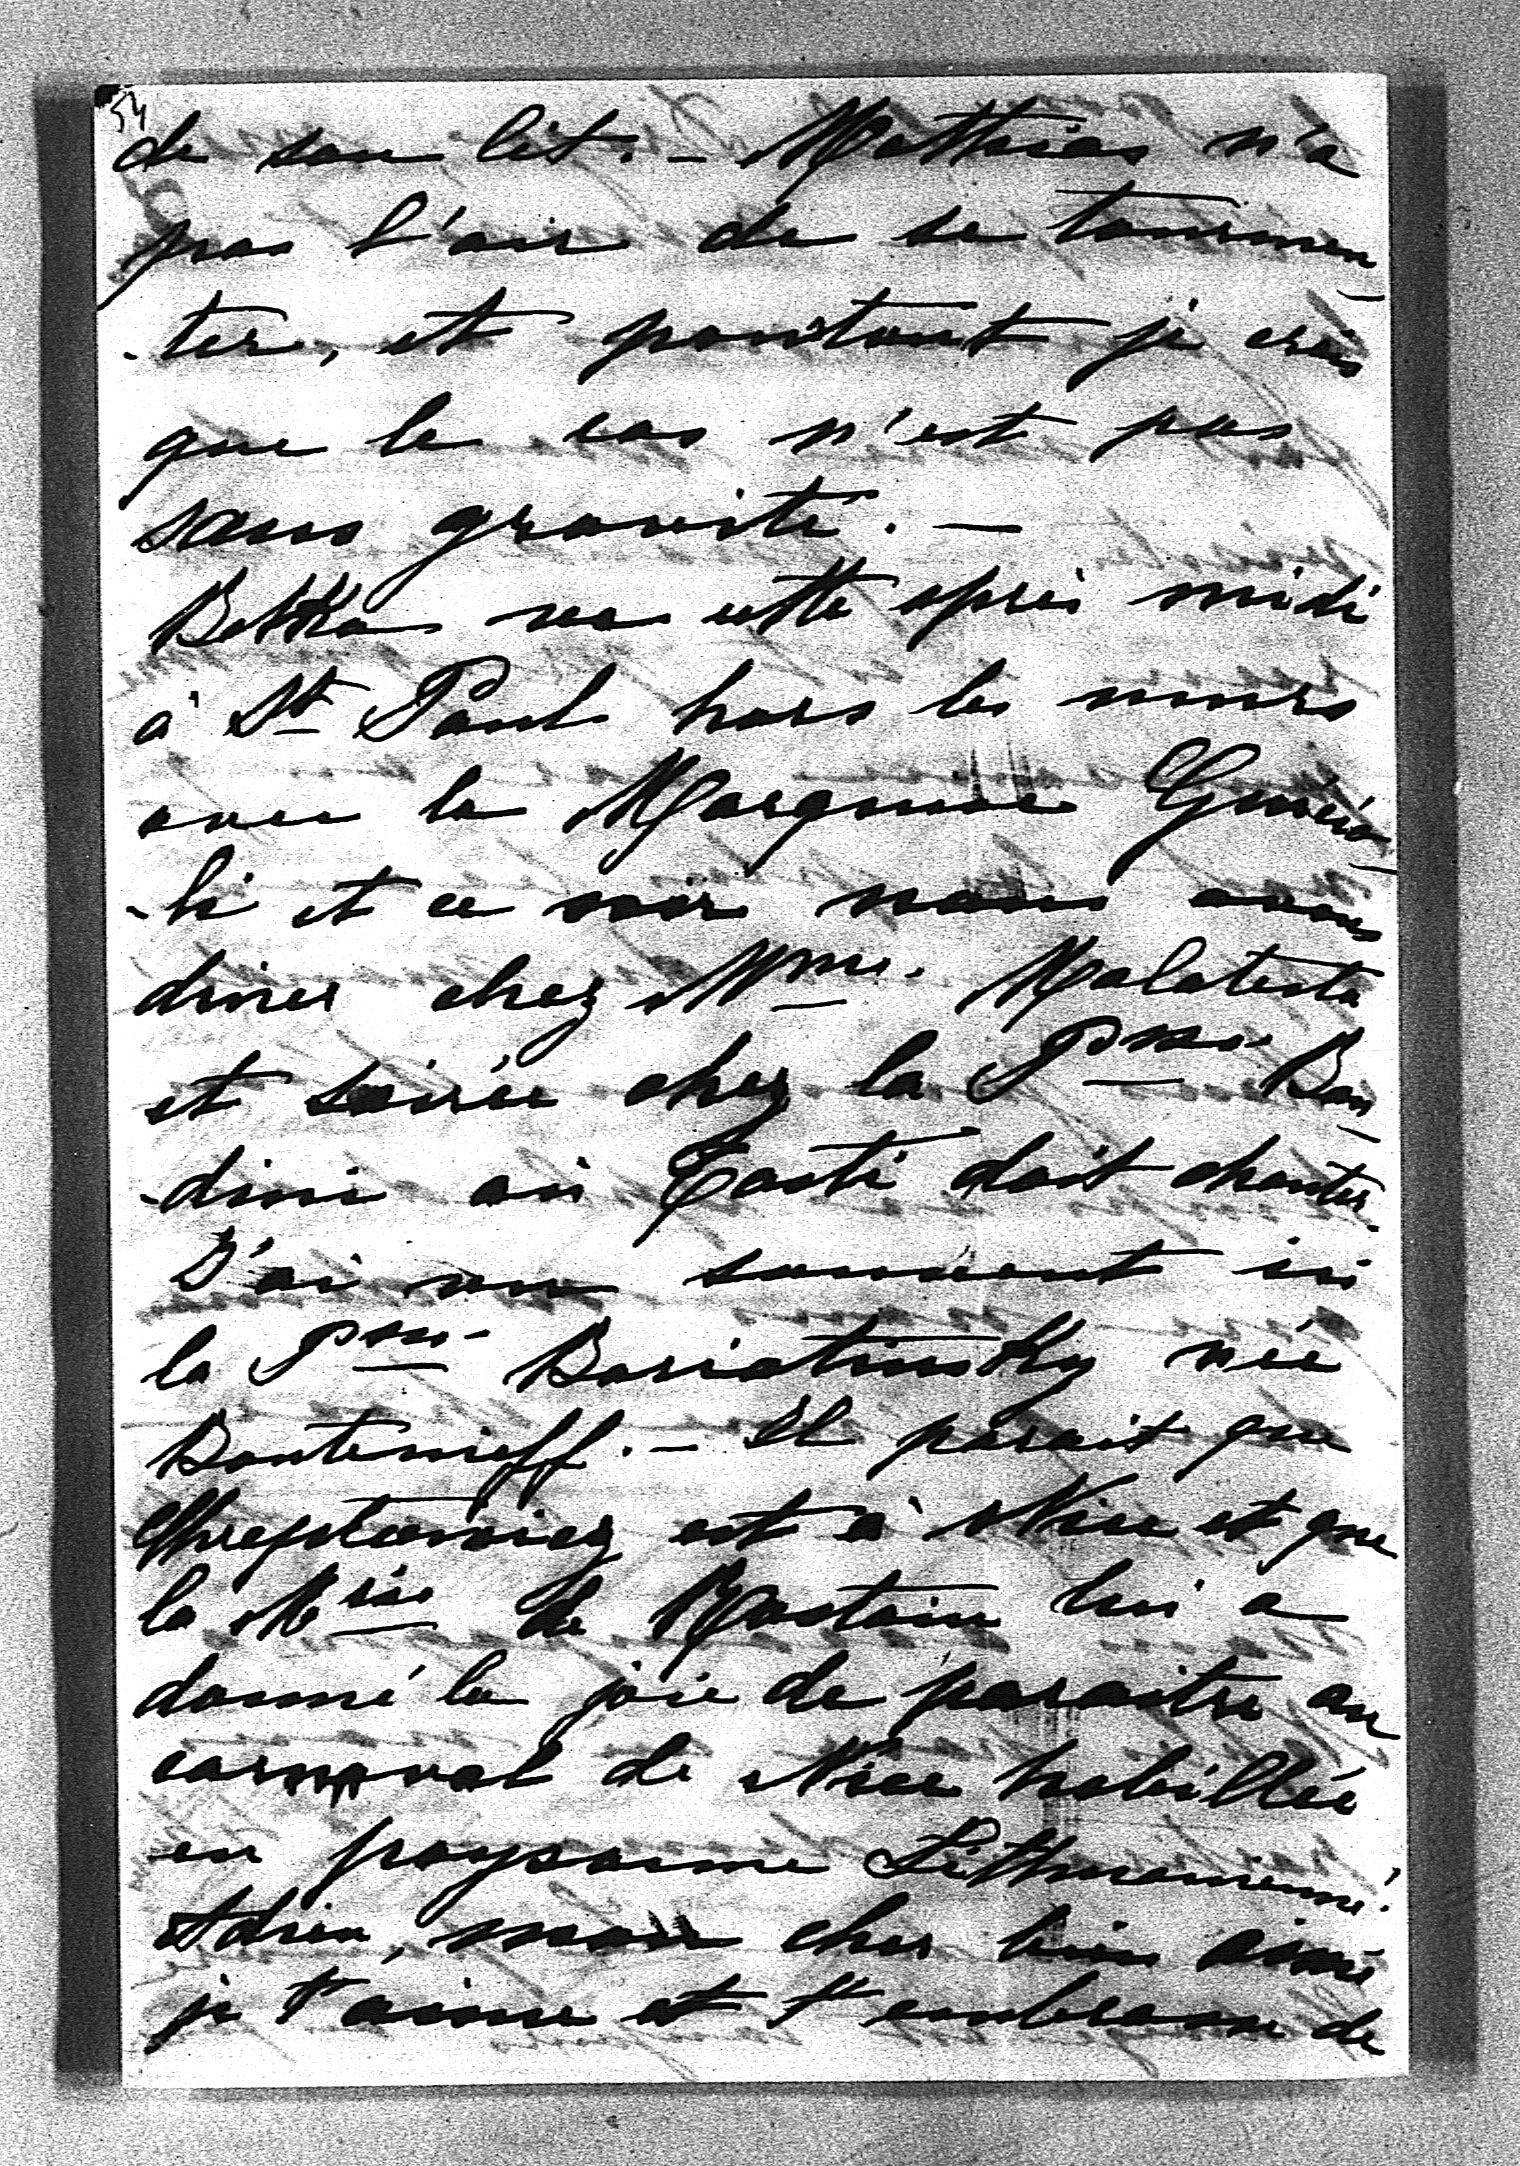 54
de son lit. - Mathias n'a
pas l'air de se tourmen
-ter, et pourtant je crois
que le cas n'est pas
sans gravité. -
Betka va cette après midi
à St Paul hors les murs
avec la Marquise
-li et ce soir nous avons
diner chez Mme. Malatesta
et soirée chez la Psse. Ban
-dini où Tosti doit chanter.
J'ai vu souvent ici
la Psse. Bariatinsky née
Boutenieff. - Il parait que
Chreptowicz est à Nice et que
la Mise de lui a
donné la joie de paraitre au
carnaval de Nice habillée
en paysanne Lithuanienne!
Adieu, mon cher bien aimé
je t'aime et t'embrasse de